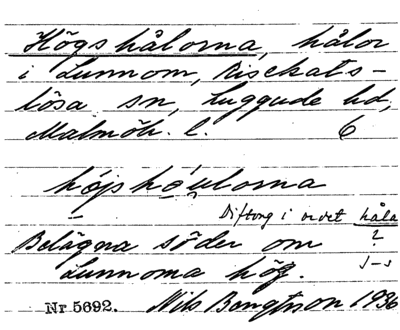 Högshålorna, hålor
i Lunnom, Risekats-
lösa sn, Luggude hd,
Malmöh. l. 6
höjshöulorna
Diftong i ordet håla
?
Belägna söder om
J-s
Lunnoma hög.
Nr 5692. Nils Bengtsson 1936